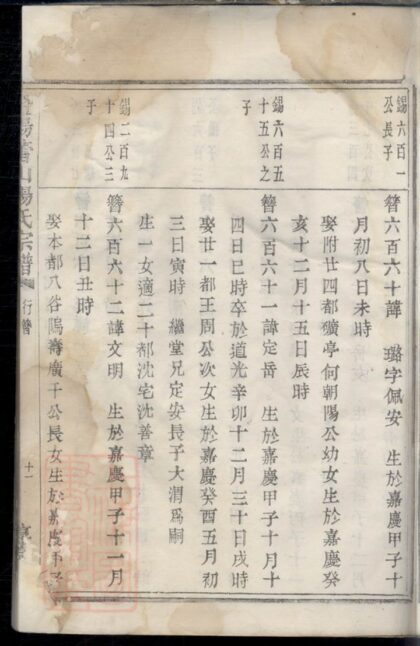 錫六百一
公長子
簪六百六十諱　璐字佩安　生於嘉慶甲子十
月初八日未時
娶附廿四都獷亭何朝陽公幼女生於嘉慶癸
亥十二月十五日辰時
錫六百五
十五公之
子
簪六百六十一諱定岳　生於嘉慶甲子十月十
四日巳時卒於道光辛卯十二月三十日戌時
娶廿一都王周公次女生於嘉慶癸酉五月初
三日寅時　繼堂兄定安長子大潤爲嗣
生一女適二十都沈宅沈善章
錫二百九
十四公三
子
簪六百六十二諱文明　生於嘉慶甲子十一月
十二日丑時
娶本都八谷隝壽廣千公長女生於嘉慶甲子
山楊氏宗譜
行簪
十一